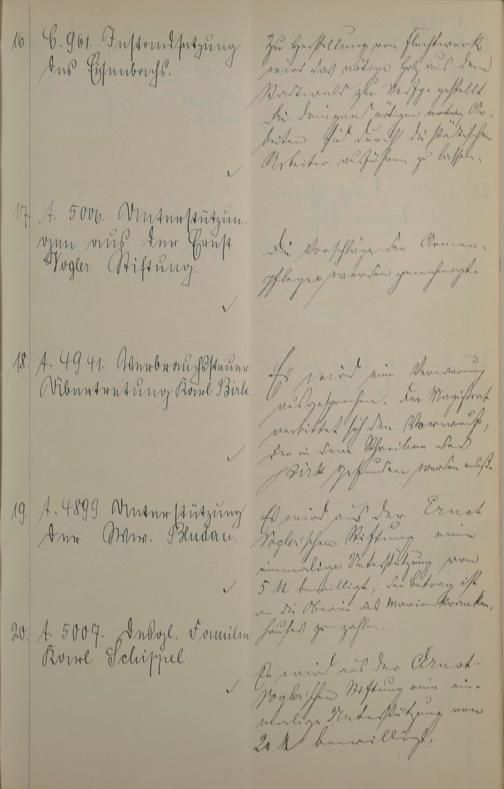 16. C. 961. Instandsetzung
des Eisenbachs.
Zur Herstellung von Flechtwerk
wird das nötige Holz aus dem
Stadtwald zur Verfg. gestellt.
Die dringend nötigen Ar-
beiten sind durch die städtischen
Arbeiter ausführen zu lassen.
17. A. 5006. Unterstützun-
gen aus der Ernst
Vogler Stiftung.
Die Vorschläge der Armen-
pfleger werden genehmigt.
18. A. 4941. Verbrauchssteuer
Übertretung Karl Birk
Es wird eine Verwarnung
ausgesprochen. Der Magistrat
verbittet sich den Vorwurf,
der in dem Schreiben des
Birk gefunden werden muß.
19. A. 4899 Unterstützung
der Wwe.
Es wird aus der Ernst
Vogler'schen Stiftung eine
einmalige Unterstützung von
5 M bewilligt; der Betrag ist
an die Oberin des Marienkranken-
hauses zu zahlen.
20. A. 5007. Desgl. Familie
Karl Schippel
Es wird aus der Ernst-
Vogler'schen Stiftung eine ein-
malige Unterstützung von
20 M bewilligt.